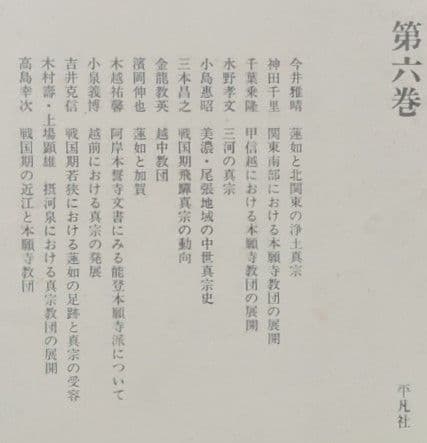 第六巻
今井雅晴　蓮如と北関東の浄土真宗
神田千里　関東南部における本願寺教団の展開
千葉乗隆　甲信越における本願寺教団の展開
水野孝文　三河の真宗
小島惠昭　美濃・尾張地域の中世真宗史
三本昌之　戦国期飛驒真宗の動向
金龍教英　越中教団
濱岡伸也　蓮如と加賀
木越祐馨　阿岸本誓寺文書にみる能登本願寺派について
小泉義博　越前における真宗の発展
吉井克信　戦国期若狭における蓮如の足跡と真宗の受容
木村壽・上場顕雄　摂河泉における真宗教団の展開
高島幸次　戦国期の近江と本願寺教団
平凡社